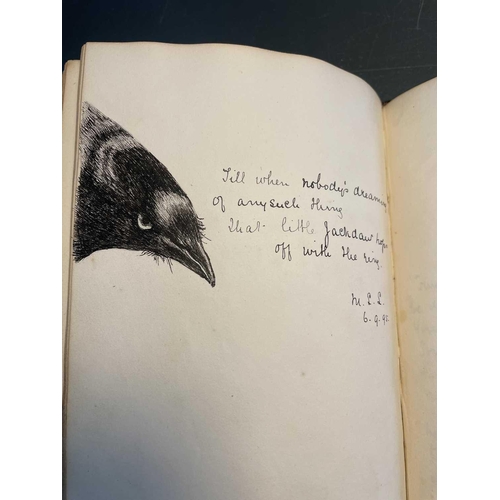 Till when nobody's dreaming
of any such thing
That little Jackdaw hops
off with the ring.
M. L. L.
6. 9. 92.